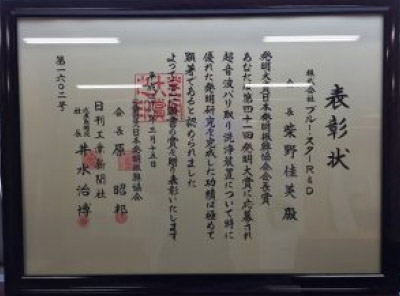 表彰状
株式会社 ブルー・スターR&D
会長 柴野佳英 殿
発明大賞日本発明振興協会会長賞
あなたは第四十一回発明大賞に応募され
超音波バリ取り洗浄装置について特に
優れた発明研究を完成した功績は極めて
顕著であると認められました
よってここに頭書の賞を贈り表彰いたします
平成 年三月十五日
日本発明振興協会
会長 原 昭邦
日刊工業新聞社
社長 井水治博
第一六〇二号